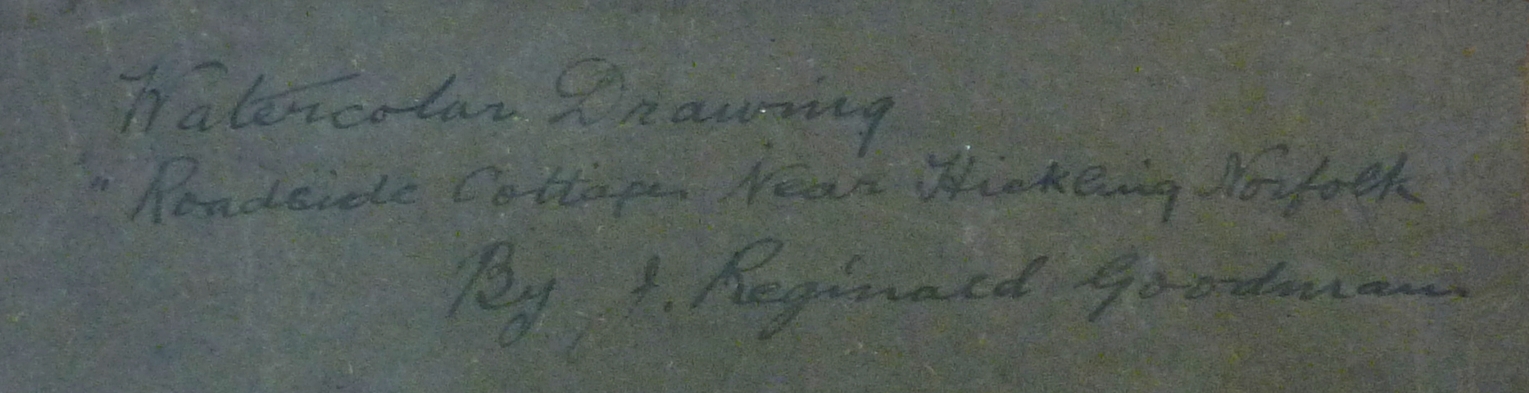 Watercolour Drawing
" Roadside Cottages Near Hickling Norfolk
By J. Reginald Goodman